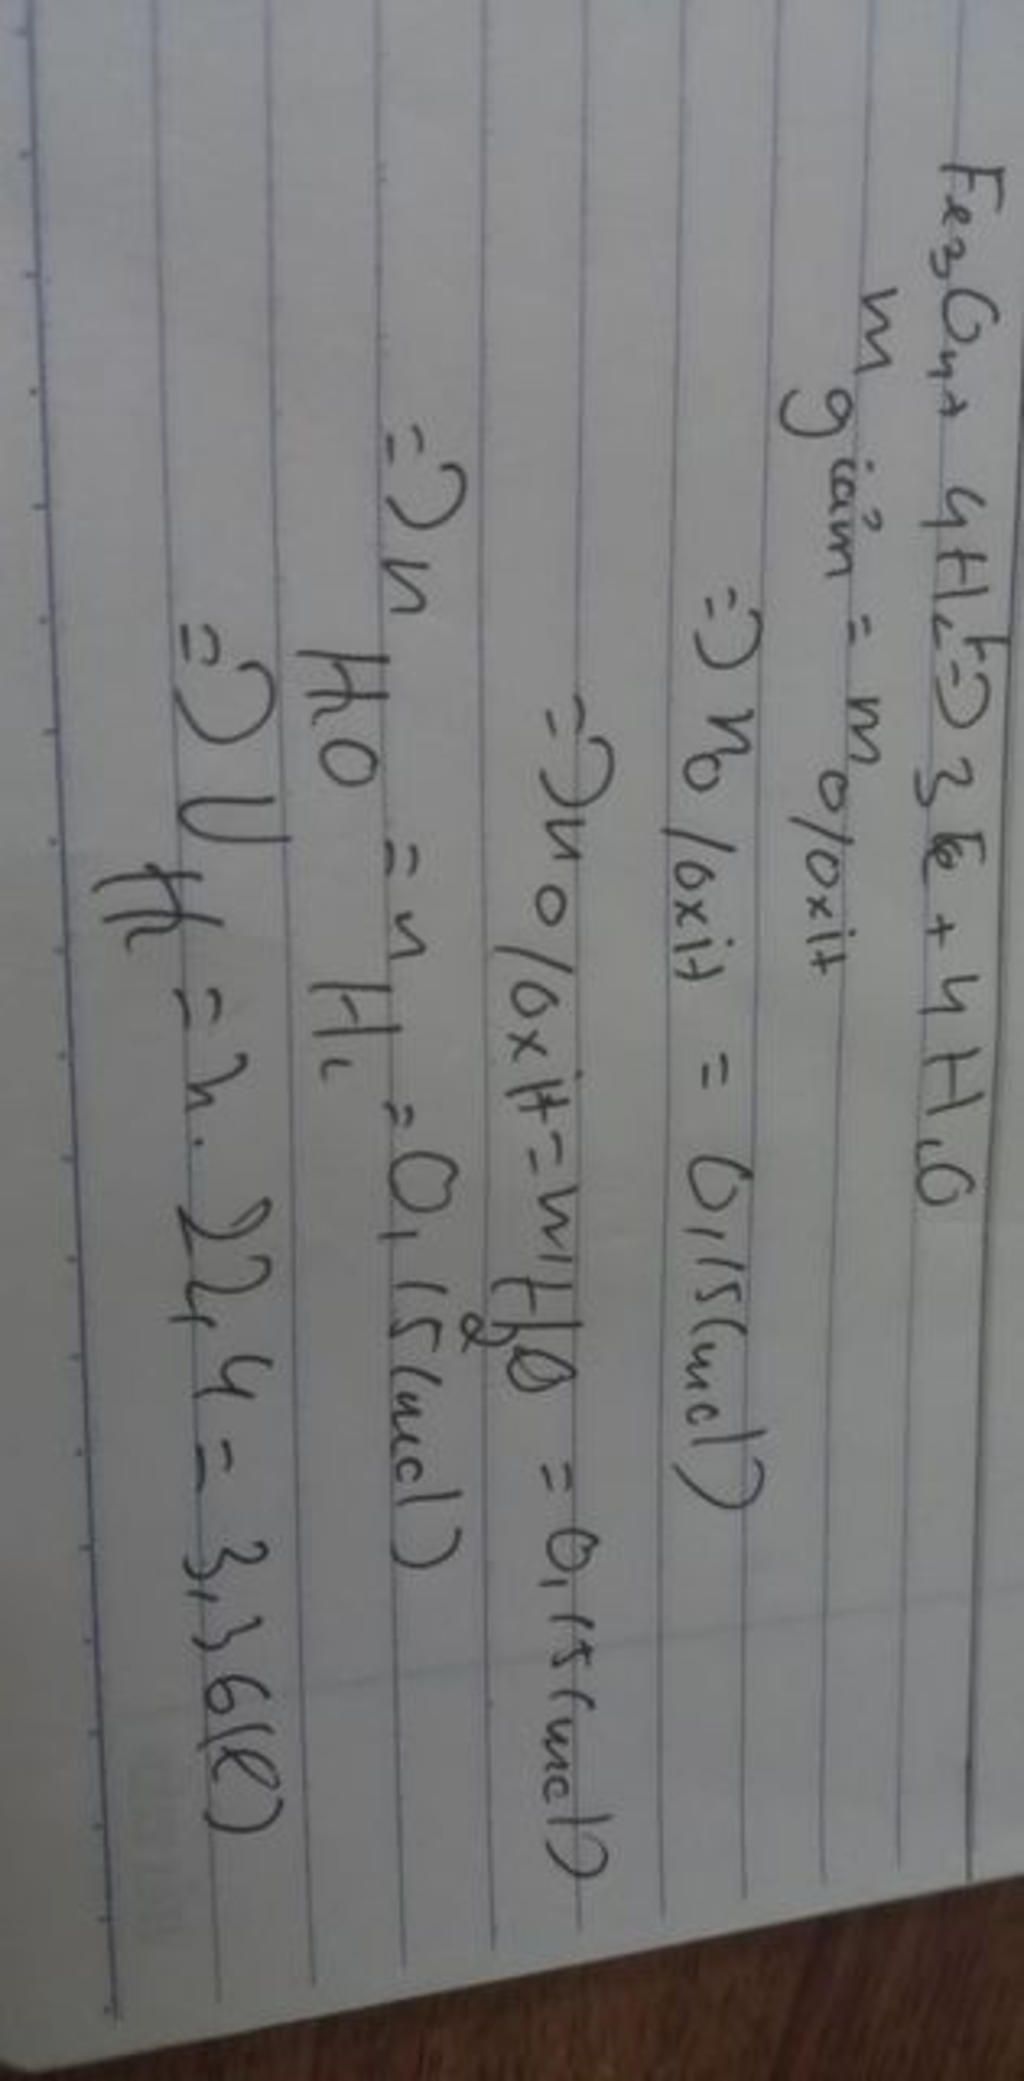 Fe3O4 + 4H2 t=> 3Fe + 4H2O
m giảm = m O/oxit
=> nO/oxit = 0,15(mol)
=> nO/oxit = nH2O = 0,15(mol)
=> n H2O = n H2 = 0,15(mol)
=> V H2 = n.22,4 = 3,36(l)